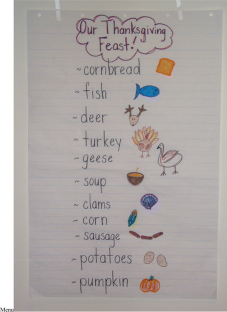 Our Thanksgiving
Feast!
- cornbread
- fish
- deer
- turkey
- geese
- soup
- clams
- corn
- sausage
- potatoes
- pumpkin
Menu